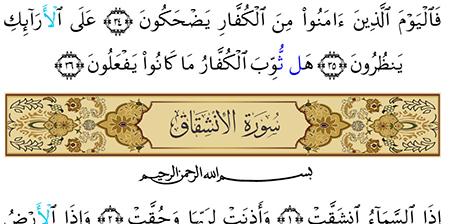 فَٱلْيَوْمَ ٱلَّذِينَ ءَامَنُوا۟ مِنَ ٱلْكُفَّارِ يَضْحَكُونَ ﴿٣٤﴾ عَلَى ٱلْأَرَآئِكِ
يَنظُرُونَ ﴿٣٥﴾ هَلْ ثُوِّبَ ٱلْكُفَّارُ مَا كَانُوا۟ يَفْعَلُونَ ﴿٣٦﴾
سُورَةُ الْانْشِقَاقِ
بسم الله الرحمن الرحيم
إِذَا ٱلسَّمَآءُ ٱنشَقَّتْ ﴿١﴾ وَأَذِنَتْ لِرَبِّهَا وَحُقَّتْ ﴿٢﴾ وَإِذَا ٱلْأَرْضُ